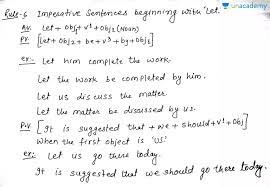 unacademy
Rule-6 Imperative Sentences beginning with 'Let.
AV: Let + Obj1 + V¹ + Obj2 (Noun)
PV: [Let + Obj2 + be + V³ + by + Obj1]
ex:- Let him complete the work.
Let the work be completed by him.
Let us discuss the matter.
Let the matter be discussed by us.
P.V [It is suggested that + we + should + V¹ + Obj]
When the first object is 'US'
ex:- Let us go there today.
It is suggested that we should go there today.